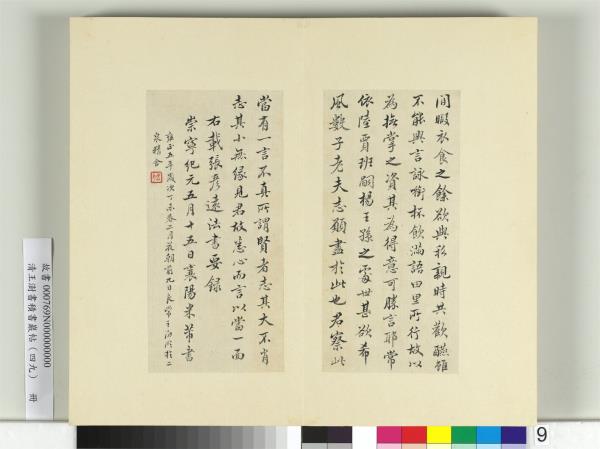 間暇衣食之餘欲與親親時共歡讌雖
不能興言詠銜杯飲滿語田里所行故以
為撫掌之資其為得意可勝言耶常
依陸賈班嗣楊王孫之處世甚欲希
風數子老夫志願盡於此也君察此
當有一言不真所謂賢者志其大不肖
志其小無緣見君故悉心而言以當一面
右載張彥遠法書要錄
崇寧紀元五月十五日襄陽米芾書
雍正五年歲次丁未春二月花朝前九日良常王澍臨於二
泉精舍
故書 000769N000000000
清王澍書積書巖帖(四九) 冊
9